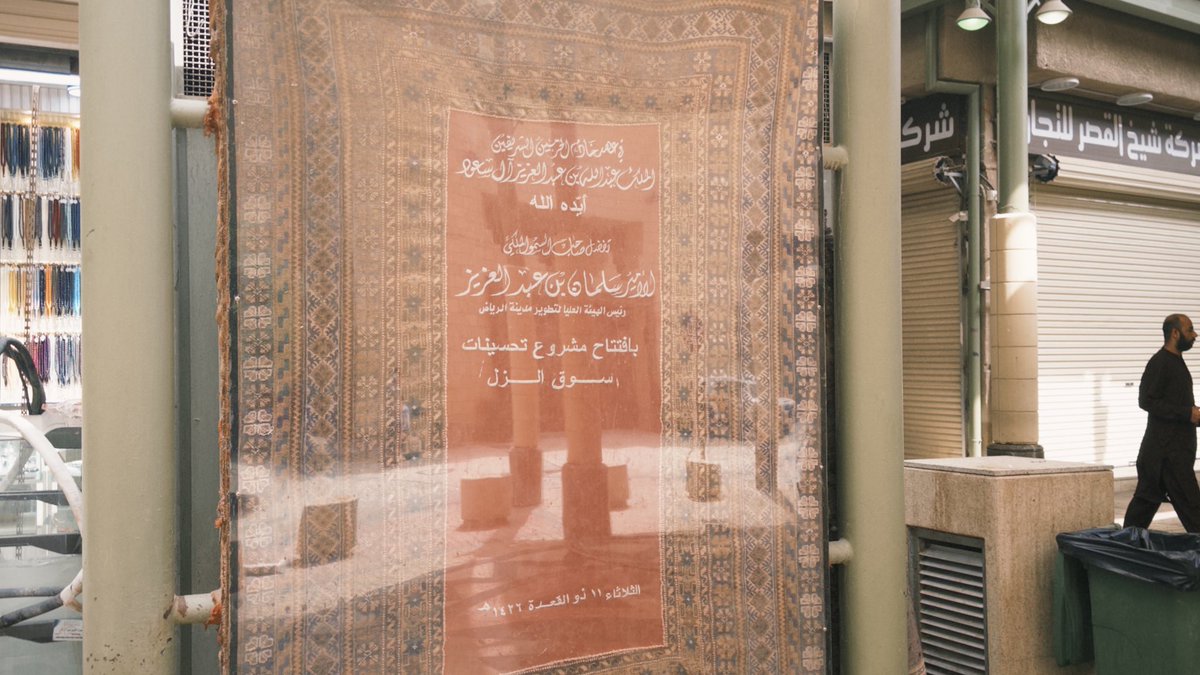 في عهد خادم الحرمين الشريفين
الملك عبدالله بن عبدالعزيز آل سعود
أيّده الله
تفضل صاحب السمو الملكي
الأمير سلمان بن عبد العزيز
رئيس الهيئة العليا لتطوير مدينة الرياض
بافتتاح مشروع تحسينات
سوق الزل
الثلاثاء ١١ ذو القعدة ١٤٢٦هـ
شركة
شركة شيخ القصر للتجار